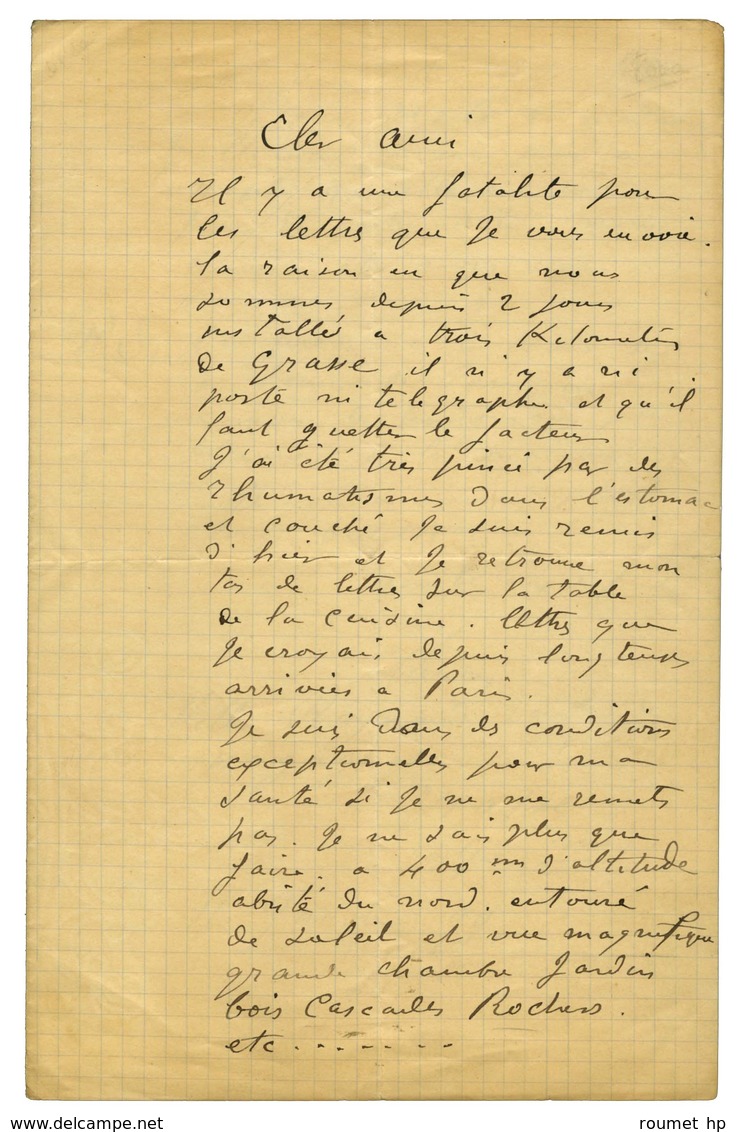 Cher ami
Il y a une fatalité pour
les lettres que je vous envoie.
la raison en que nous
sommes depuis 2 jours
installés a trois Kilometres
de Grasse il n'y a ni
poste ni telegraphe et qu'il
faut guetter le facteur
J'ai été très pincé par des
rhumatismes dans l'estomac
et couché je suis remis
d'hier et je retrouve mon
tas de lettres sur la table
de la cuisine. lettres que
je croyais depuis longtemps
arrivées a Paris.
Je suis dans des conditions
exceptionnelles pour ma
santé si je ne me remets
pas. je ne sais plus que
faire. a 400 mm d'altitude
abrité du nord. entouré
de soleil et vue magnifique
grande chambre Jardin
bois Cascades Rochers.
etc.......
www.delcampe.net
roumet hp